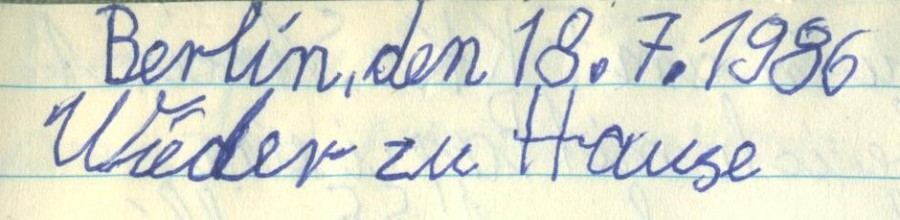 Berlin, den 18.7.1986
Wieder zu Hause